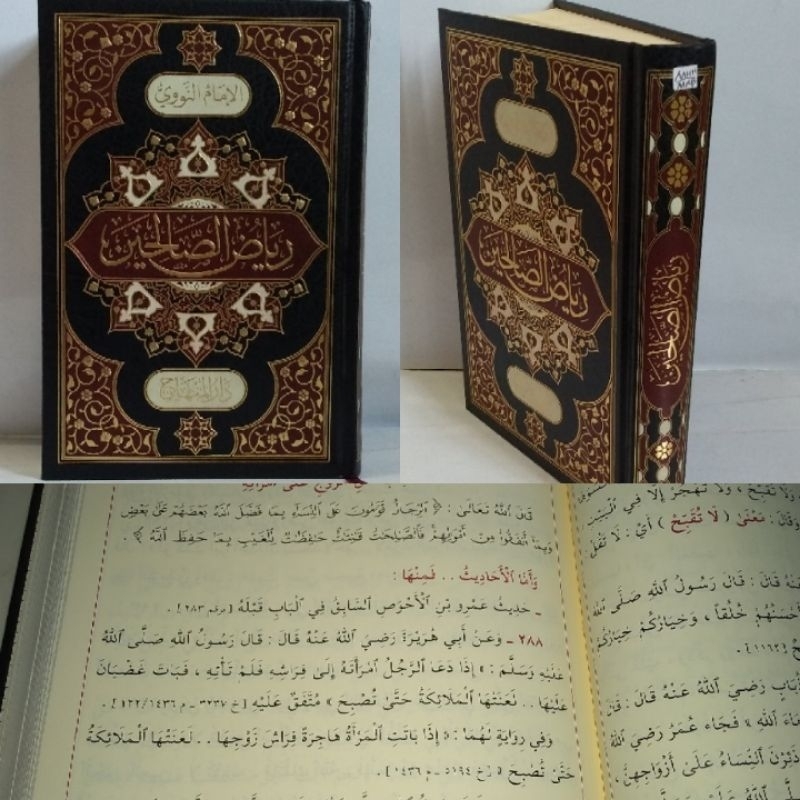 الإمام النووي
رِيَاضُ الصَّالِحِينَ
دار المنهاج
رِيَاضُ الصَّالِحِينَ
رِيَاضُ الصَّالِحِينَ
قَالَ ٱللهُ تَعَالَىٰ : ﴿ ٱلرِّجَالُ قَوَّٰمُونَ عَلَى ٱلنِّسَآءِ بِمَا فَضَّلَ ٱللَّهُ بَعْضَهُمْ عَلَىٰ بَعْضٍ
وَبِمَآ أَنفَقُوا۟ مِنْ أَمْوَٰلِهِمْ فَٱلصَّٰلِحَٰتُ قَٰنِتَٰتٌ حَٰفِظَٰتٌ لِّلْغَيْبِ بِمَا حَفِظَ ٱللَّهُ ﴾ .
وَأَمَّا ٱلْأَحَادِيثُ .. فَمِنْهَا :
ـ حَدِيثُ عَمْرِو بْنِ ٱلْأَحْوَصِ ٱلسَّابِقُ فِي ٱلْبَابِ قَبْلَهُ [برقم ٢٨٣] .
٢٨٨ ـ وَعَنْ أَبِي هُرَيْرَةَ رَضِيَ ٱللهُ عَنْهُ قَالَ : قَالَ رَسُولُ ٱللهِ صَلَّى ٱللهُ
عَلَيْهِ وَسَلَّمَ : « إِذَا دَعَا ٱلرَّجُلُ ٱمْرَأَتَهُ إِلَىٰ فِرَاشِهِ فَلَمْ تَأْتِهِ ، فَبَاتَ غَضْبَانَ
عَلَيْهَا .. لَعَنَتْهَا ٱلْمَلَائِكَةُ حَتَّىٰ تُصْبِحَ » مُتَّفَقٌ عَلَيْهِ [خ ٣٢٣٧ ـ م ١٤٣٦/١٢٢] .
وَفِي رِوَايَةٍ لَهُمَا : « إِذَا بَاتَتِ ٱلْمَرْأَةُ هَاجِرَةً فِرَاشَ زَوْجِهَا .. لَعَنَتْهَا ٱلْمَلَائِكَةُ
حَتَّىٰ تُصْبِحَ » [خ ٥١٩٤ ـ م ١٤٣٦] .
وَلَا تُقَبِّحْ ، وَلَا تَهْجُرْ إِلَّا فِي ٱلْبَيْتِ
وَقَالَ : مَعْنَىٰ ( لَا تُقَبِّحْ ) أَيْ : لَا تَقُلْ
عَنْهُ قَالَ : قَالَ رَسُولُ ٱللهِ صَلَّى ٱللهُ
أَحْسَنُهُمْ خُلُقاً ، وَخِيَارُكُمْ خِيَارُكُمْ
[١١٦٢] .
رَضِيَ ٱللهُ عَنْهُ قَالَ : قَالَ
ٱللهِ » فَجَاءَ عُمَرُ رَضِيَ ٱللهُ
ذَئِرْنَ ٱلنِّسَاءُ عَلَىٰ أَزْوَاجِهِنَّ
صَلَّى ٱللهُ عَلَيْهِ وَسَلَّمَ